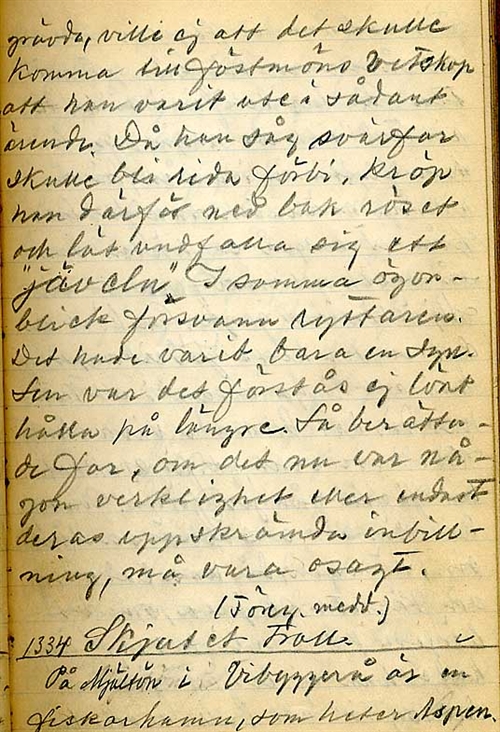 grävde, ville ej att det skulle
komma till föstmöns vetskap
att han varit ute i sådant
ärende. Då han såg svärfar
skulle bli rida förbi, kröp
han därför ned bak röset
och lät undfalla sig ett
"jäveln". I samma ögon-
blick försvann ryttaren.
Det hade varit bara en syn.
Sen var det förstås ej lönt
hålla på längre. Så berätta-
de far, om det nu var nå-
gon verklighet eller endast
deras uppskrämda inbill-
ning, må vara osagt.
(Föreg. medd.)
1334 Skjutet Troll.
På Mjältön i Vibyggerå är en
fiskarhamn, som heter Aspen.